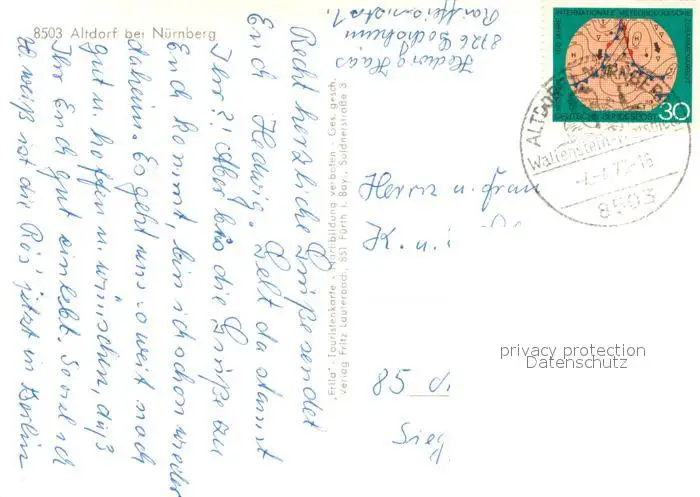 8503 Altdorf bei Nürnberg
Recht herzliche Grüße sendet
Euch Hedwig. Gelt da staunt
Ihr?! Aber bis die Grüße zu
Euch kommt, bin ich schon wieder
daheim. Es geht uns soweit noch
gut u. hoffen u. wünschen, daß
Ihr Euch gut einlebt. Soviel ich
weiß ist die Rös' jetzt in Berlin
"Frila"-Touristenkarte · Nachbildung verboten · Ges. gesch.
Verlag Fritz Lauterbach, 851 Fürth i. Bay., Soldnerstraße 3
Hedwig Haas
8726 Gochsheim
INTERNATIONALE METEOROLOGISCHE
ZUSAMMENARBEIT
DEUTSCHE BUNDESPOST
30
ALTDORF NÜRNBERG
Wallenstein-
8503
Herrn u. Frau
K. u.
85
privacy protection
Datenschutz